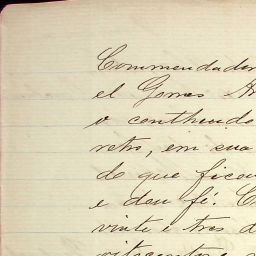 Commendador
el Gomes
o conthendo
retro, em sua
do que ficou
e dou fé. C
vinte e tres d
oitocentos e